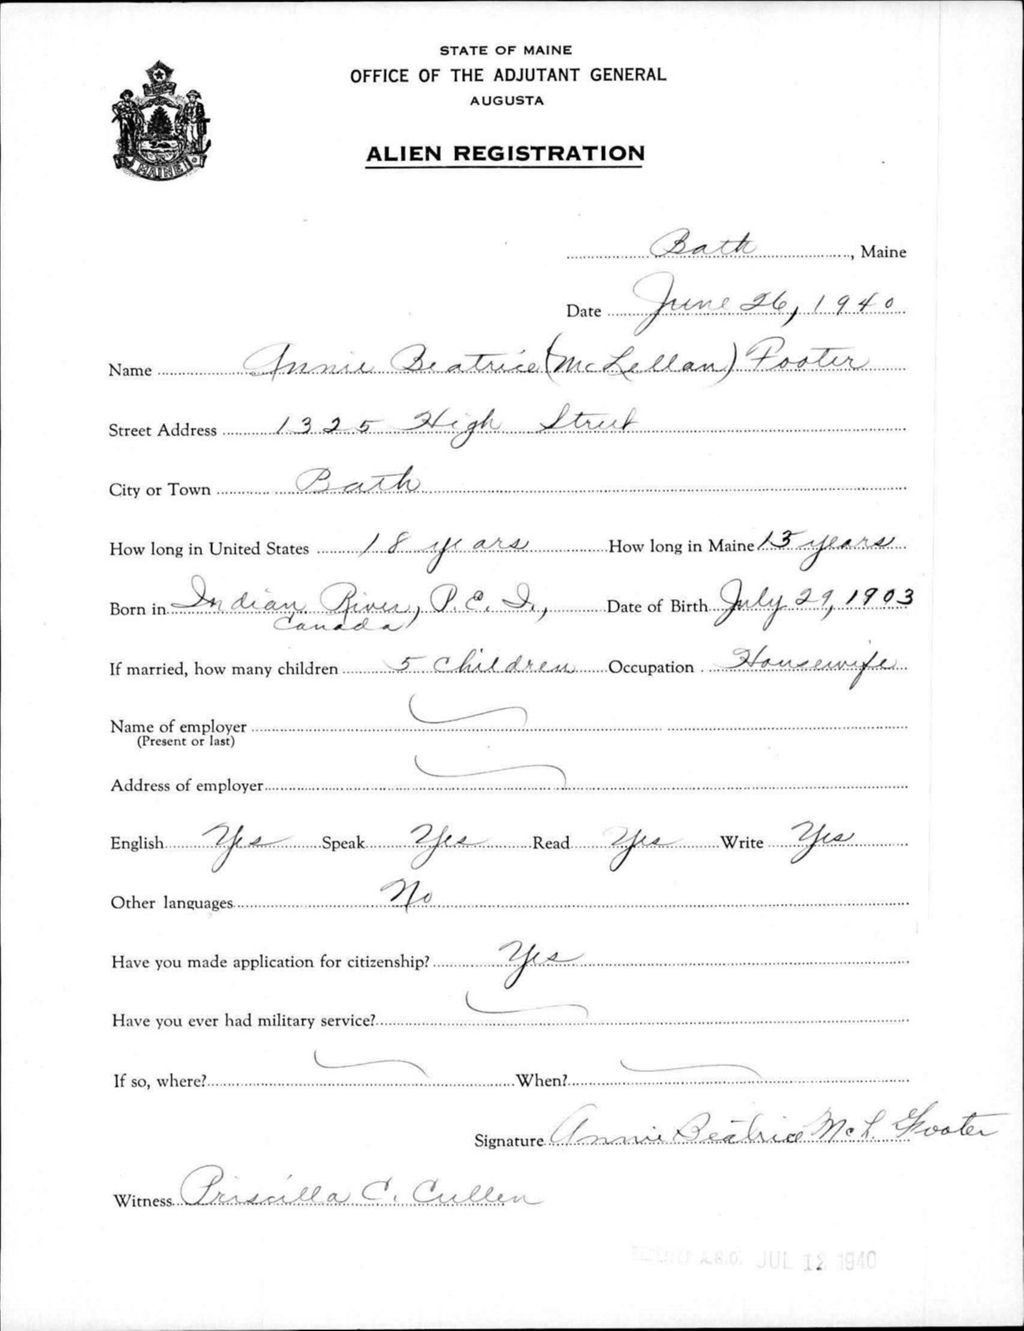 STATE OF MAINE
OFFICE OF THE ADJUTANT GENERAL
AUGUSTA
ALIEN REGISTRATION
MAINE
Bath, Maine
Date June 26, 1940
Name Annie Beatrice (McLellan) Footer
Street Address 1325 High Street
City or Town Bath
How long in United States 18 years How long in Maine 15 years
Born in Indian River, P.E.I., Date of Birth July 29, 1903
Canada
If married, how many children 5 children Occupation Housewife
Name of employer
(Present or last)
Address of employer
English Yes Speak Yes Read Yes Write Yes
Other languages No
Have you made application for citizenship? Yes
Have you ever had military service?
If so, where? When?
Signature Annie Beatrice McL. Footer
Witness Priscilla C. Cullen
A.G.O. JUL 12 1940